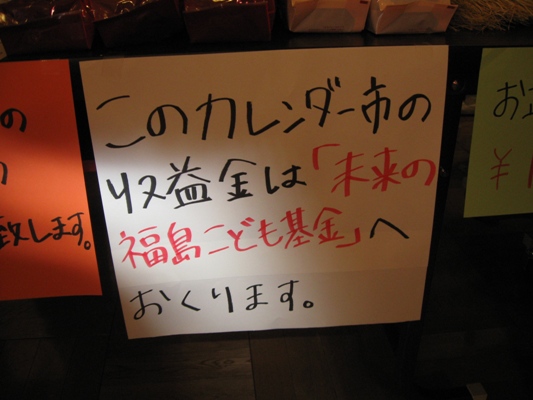 このカレンダー市の
収益金は「未来の
福島こども基金」へ
おくります。
の
致します。
お
¥1